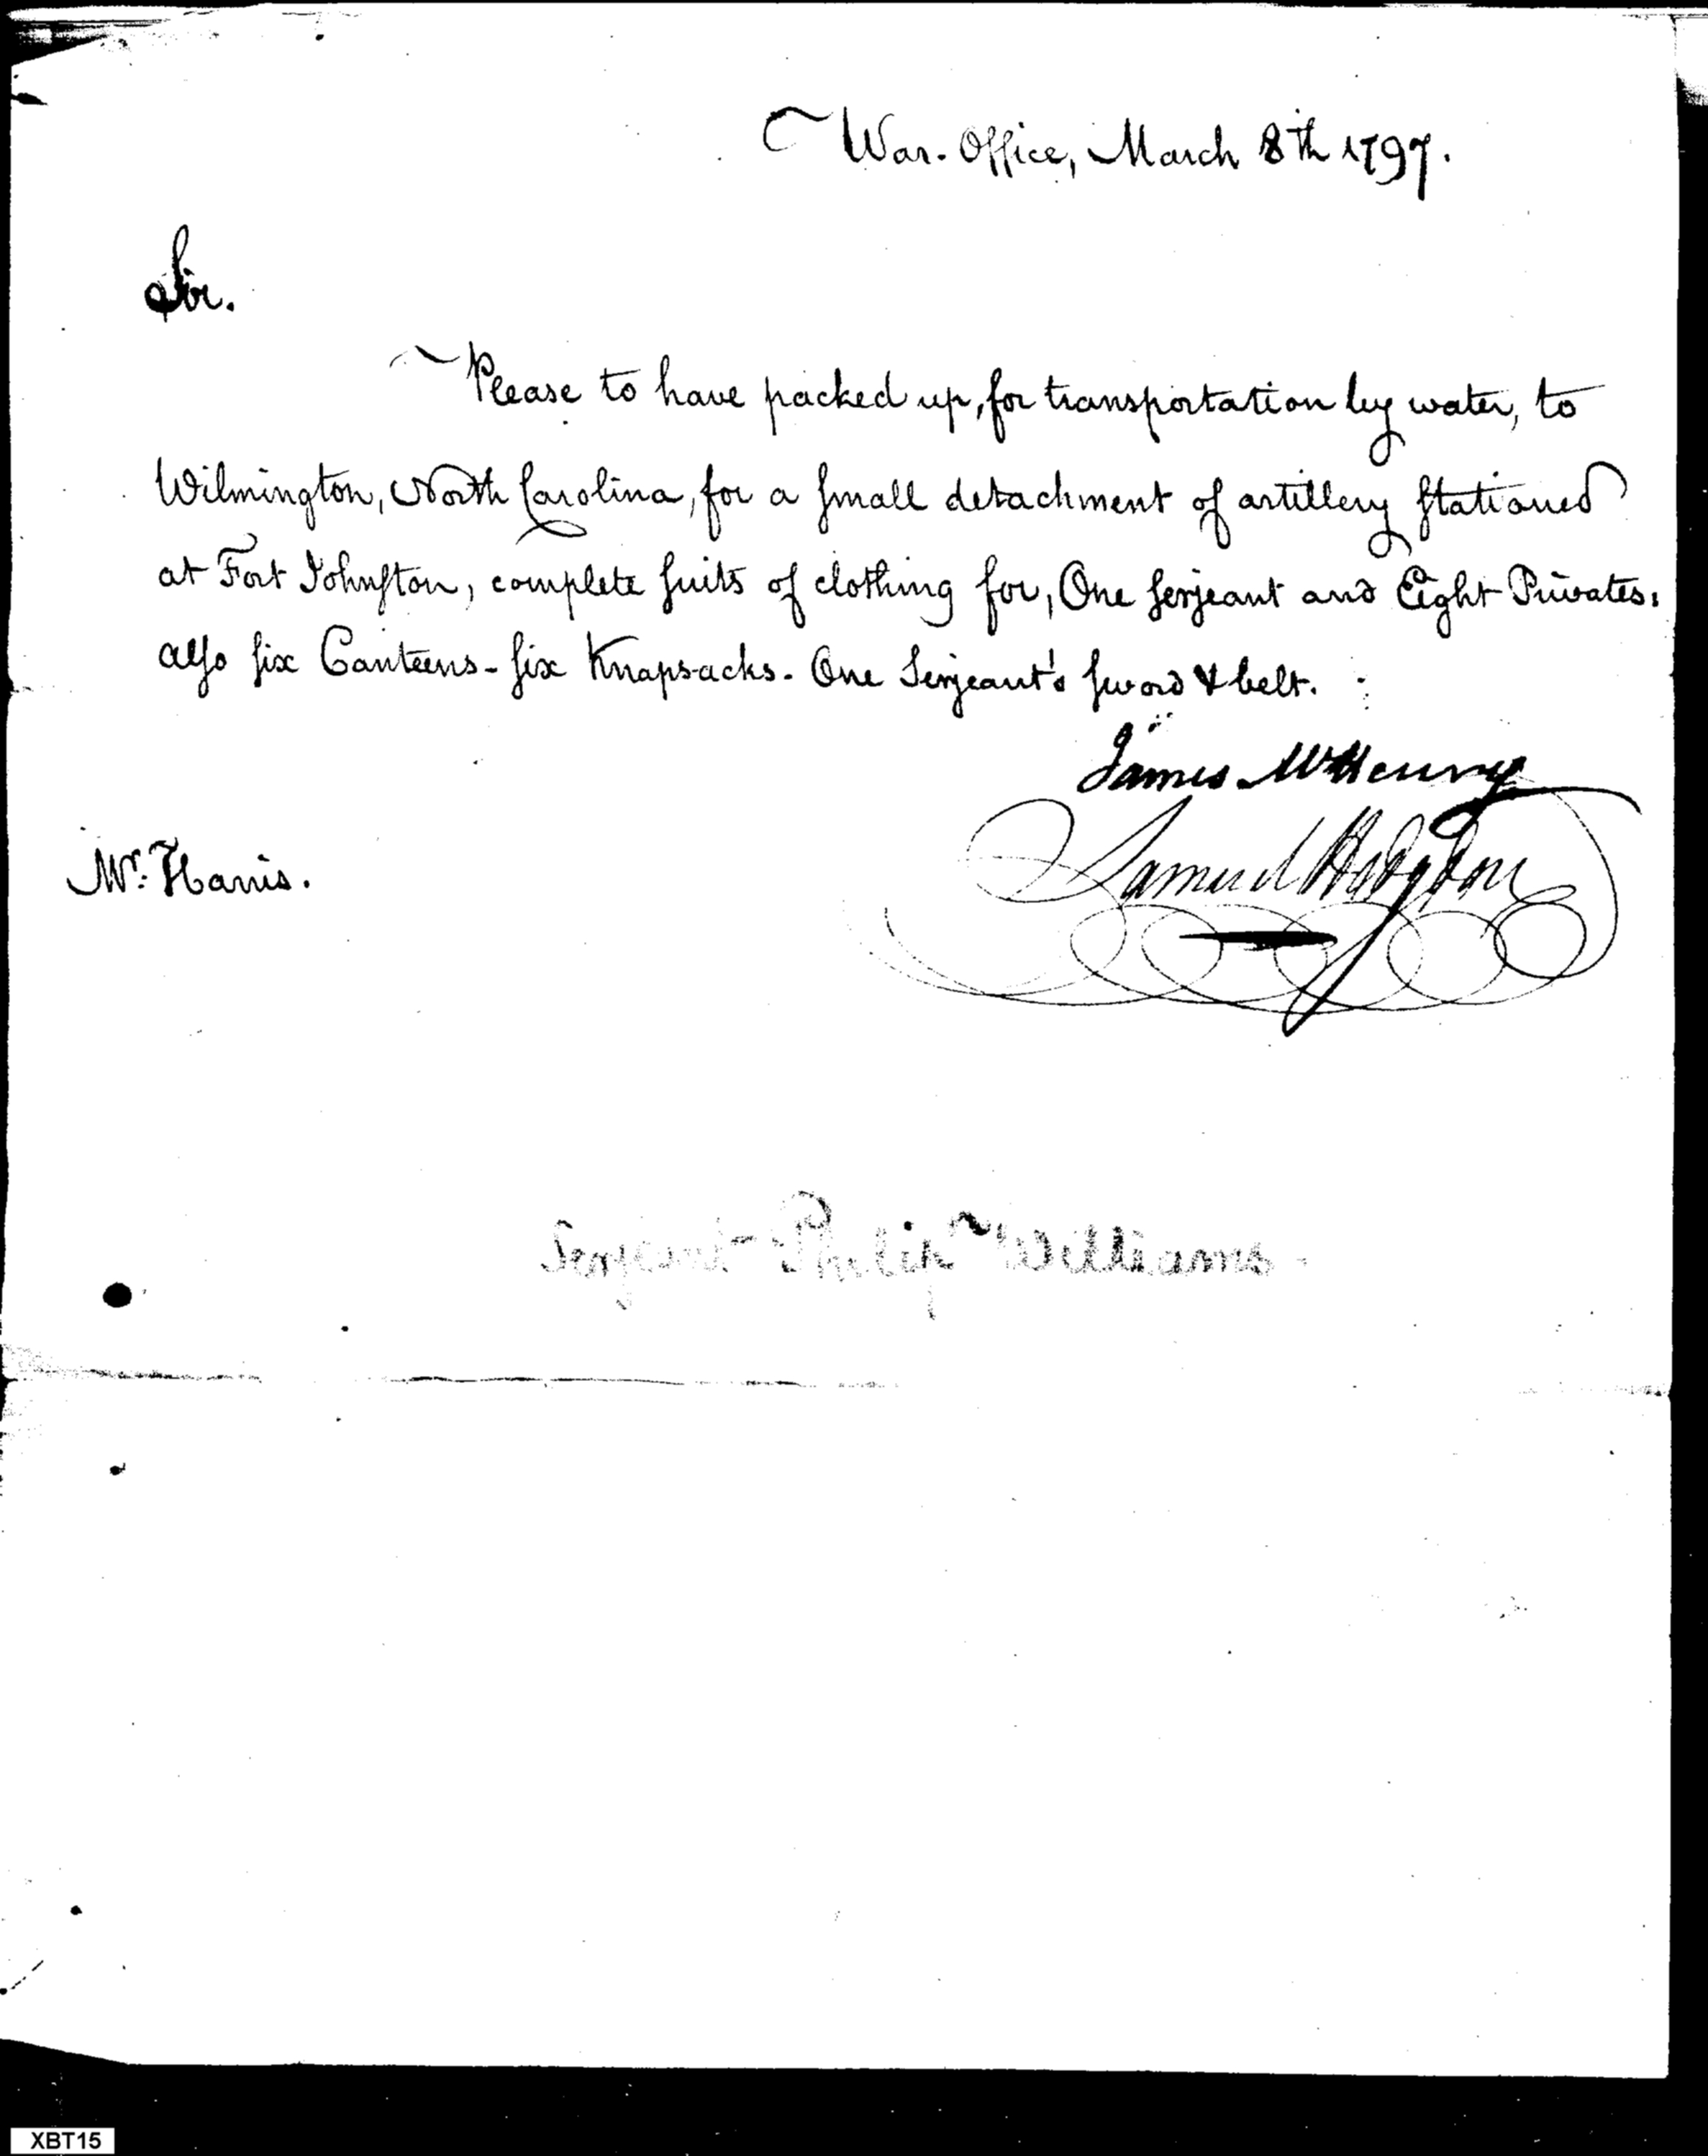 War-Office, March 8th 1797.
Sir.
Please to have packed up, for transportation by water, to
Wilmington, North Carolina, for a small detachment of artillery stationed
at Fort Johnston, complete suits of clothing for, One serjeant and Eight Privates.
also six Canteens - six Knapsacks. One Serjeant's sword & belt.
James McHenry
Samuel Hodgdon
Mr. Harris.
Serjeant Philip Williams.
XBT15